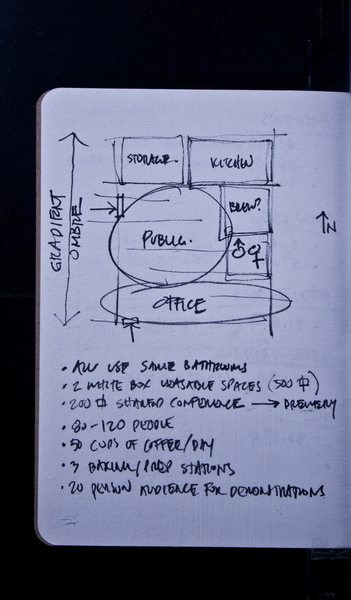 STORAGE.
KITCHEN
GRADIENT
OMBRE
BREW?
N
PUBLIC.
OFFICE
• ALL USE SAME BATHROOMS
• 2 WHITE BOX LEASABLE SPACES (500 ⌷)
• 200 ⌷ SHARED CONFERENCE → BREWERY
• 80-120 PEOPLE
• 50 CUPS OF COFFEE/DAY
• 3 BAKING/PREP STATIONS
• 20 PERSON AUDIENCE FOR DEMONSTRATIONS